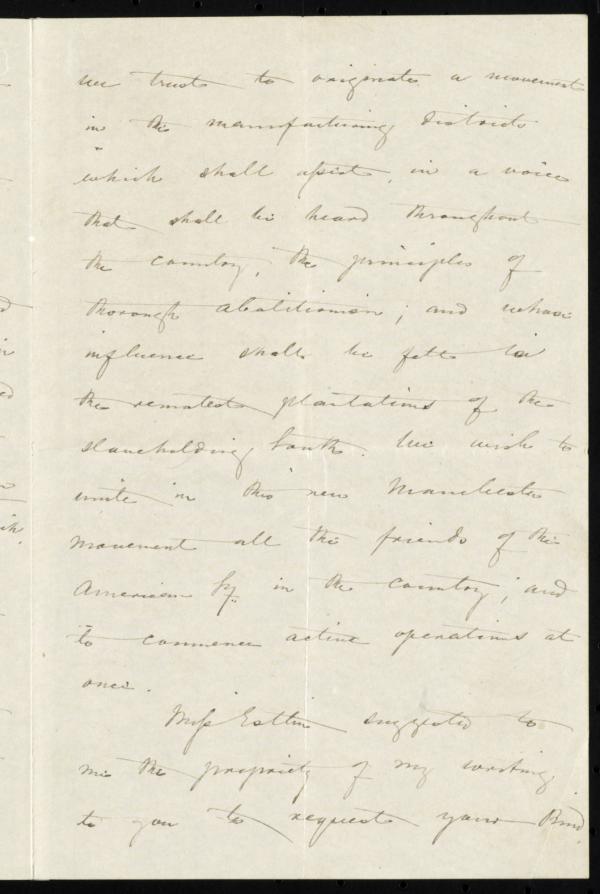 we trust to originate a movement
in the manufacturing districts
which shall assist, in a voice
that shall be heard throughout
the country, the principles of
thorough abolitionism; and whose
influence shall be felt in
the remotest plantations of the
slaveholding South. We wish to
unite in this new Manchester
movement all the friends of the
American Sy. in the country; and
to commence active operations at
once.
Miss Estlin suggested to
me the propriety of my writing
to you to request your